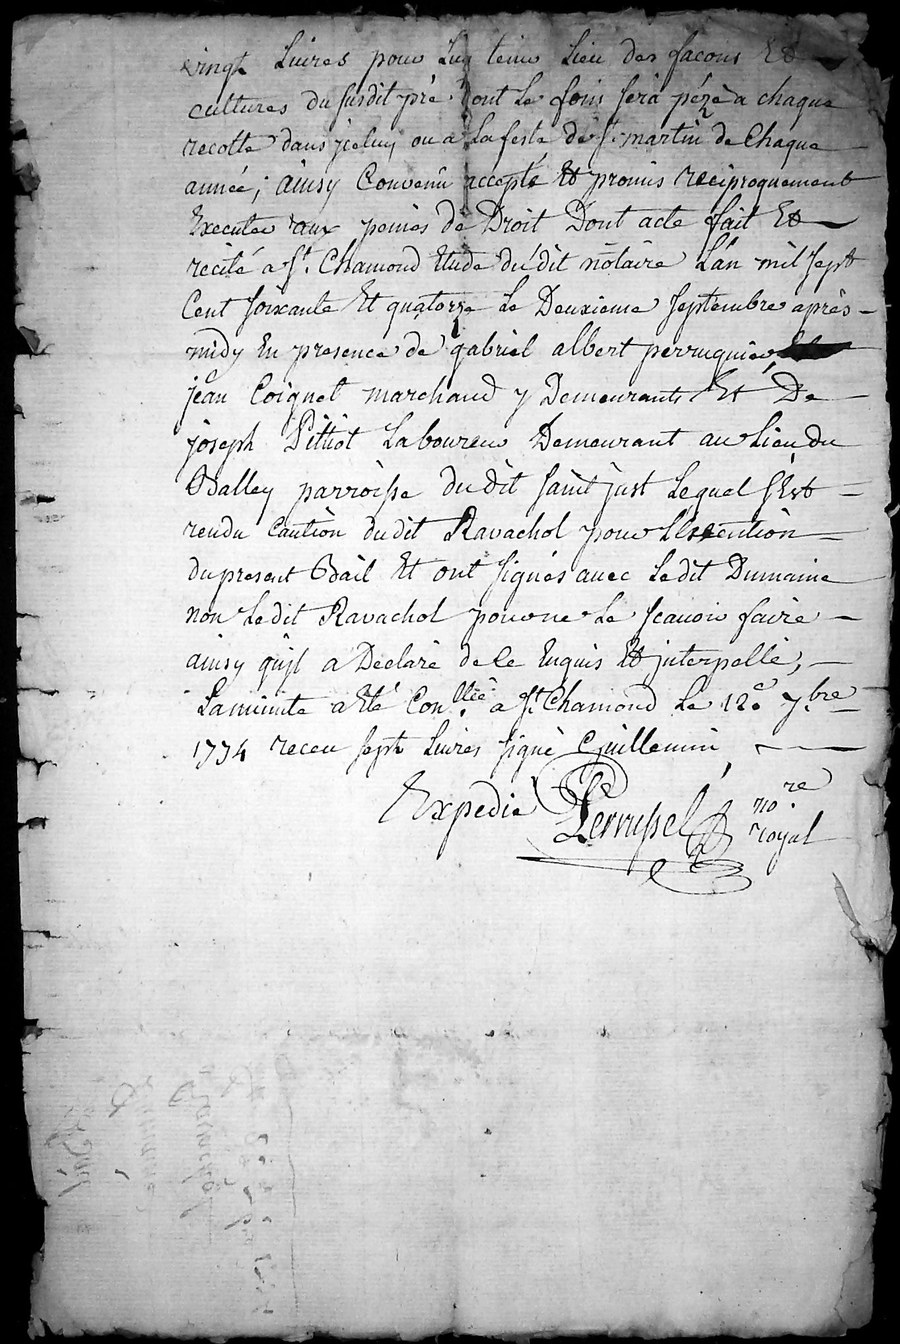 vingt Livres pour Luy tenir Lieu des façons Et
cultures du susdit pré dont Le foin sera pézé a chaque
recolte dans jceluy ou a La feste de St. martin de Chaque
année; ainsy Convenu accepté Et promis reciproquement
Executer aux peines de Droit Dont acte fait Et
recité a St. Chamond Etude du dit nôtaire L'an mil sept
Cent soixante Et quatorze Le Deuxieme septembre après
midy En presence de gabriel albert perruquier
jean Coignet marchand y Demeurants Et De
joseph Pitiot Laboureur Demeurant au Lieu du
Balley parroisse du dit saint just Lequel s'Est
rendu Caution du dit Ravachol pour L'Exécution
du present Bail Et ont signés avec Le dit Dumaine
non Le dit Ravachol pour ne Le scavoir faire
ainsy qu'jl a Declaré de ce Enquis Et jnterpellé,
La minute a Eté Conllée a St. Chamond Le 12e. 7bre
1774 receu sept Livres signé Guillemin
Expedié no.re
royal